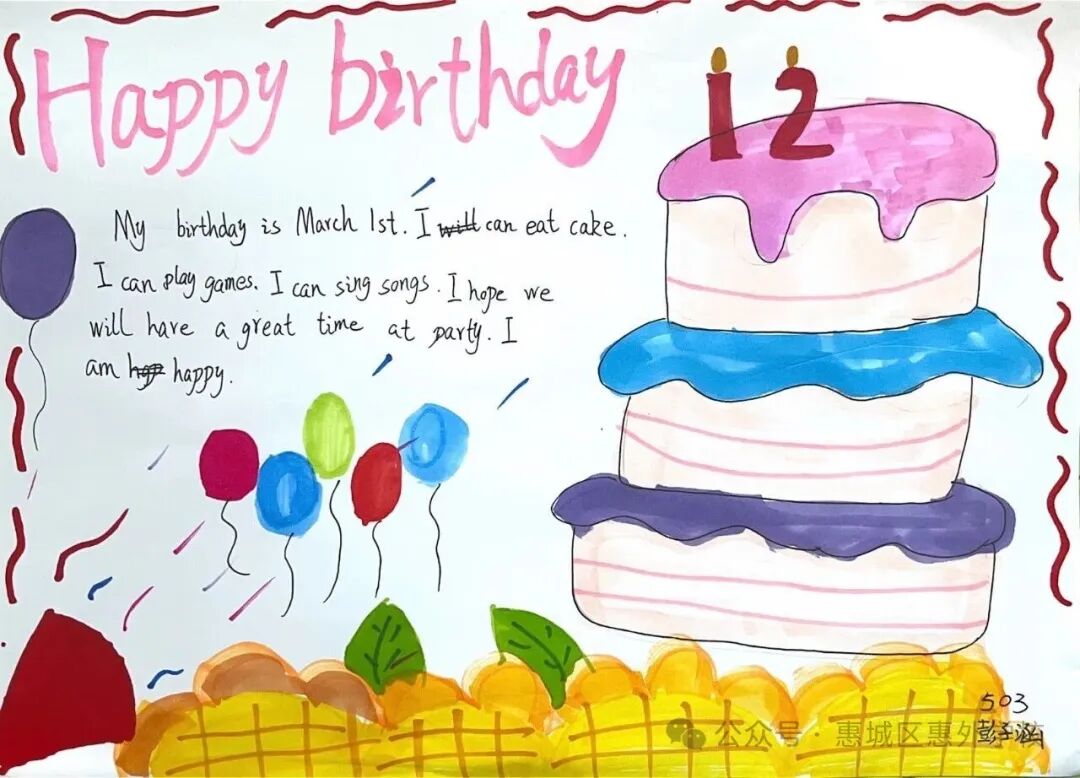 Happy birthday
12
My birthday is March 1st. I will can eat cake.
I can play games. I can sing songs. I hope we
will have a great time at party. I
am hap happy.
503
彭子涵
公众号·惠城区惠外学校